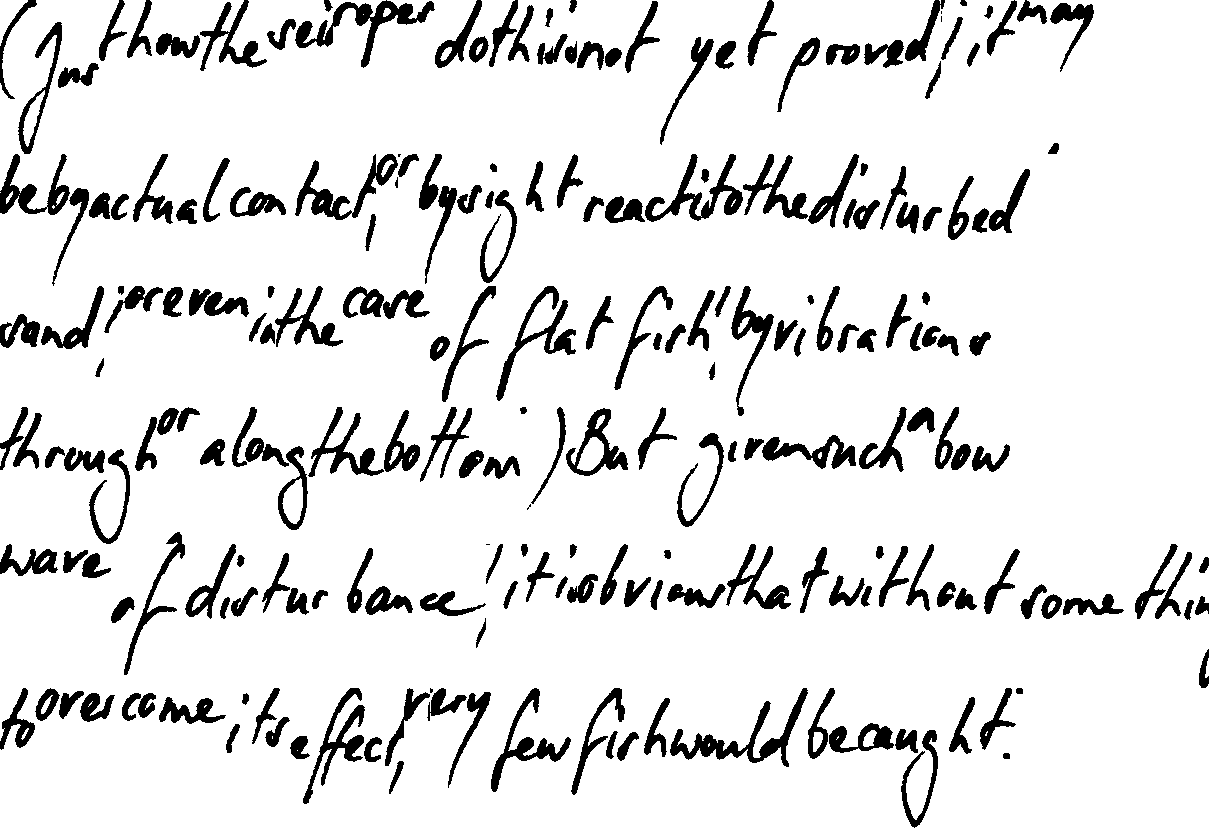 (Just how the seis ropes do this is not yet proved; it may
be by actual contact, or by sight reactis to the disturbed
sand; or even in the case of flat fish, by vibrations
through or along the bottom.) But given such a bow
wave of disturbance, it is obvious that without somethin
to overcome its effect, very few fish would be caught.